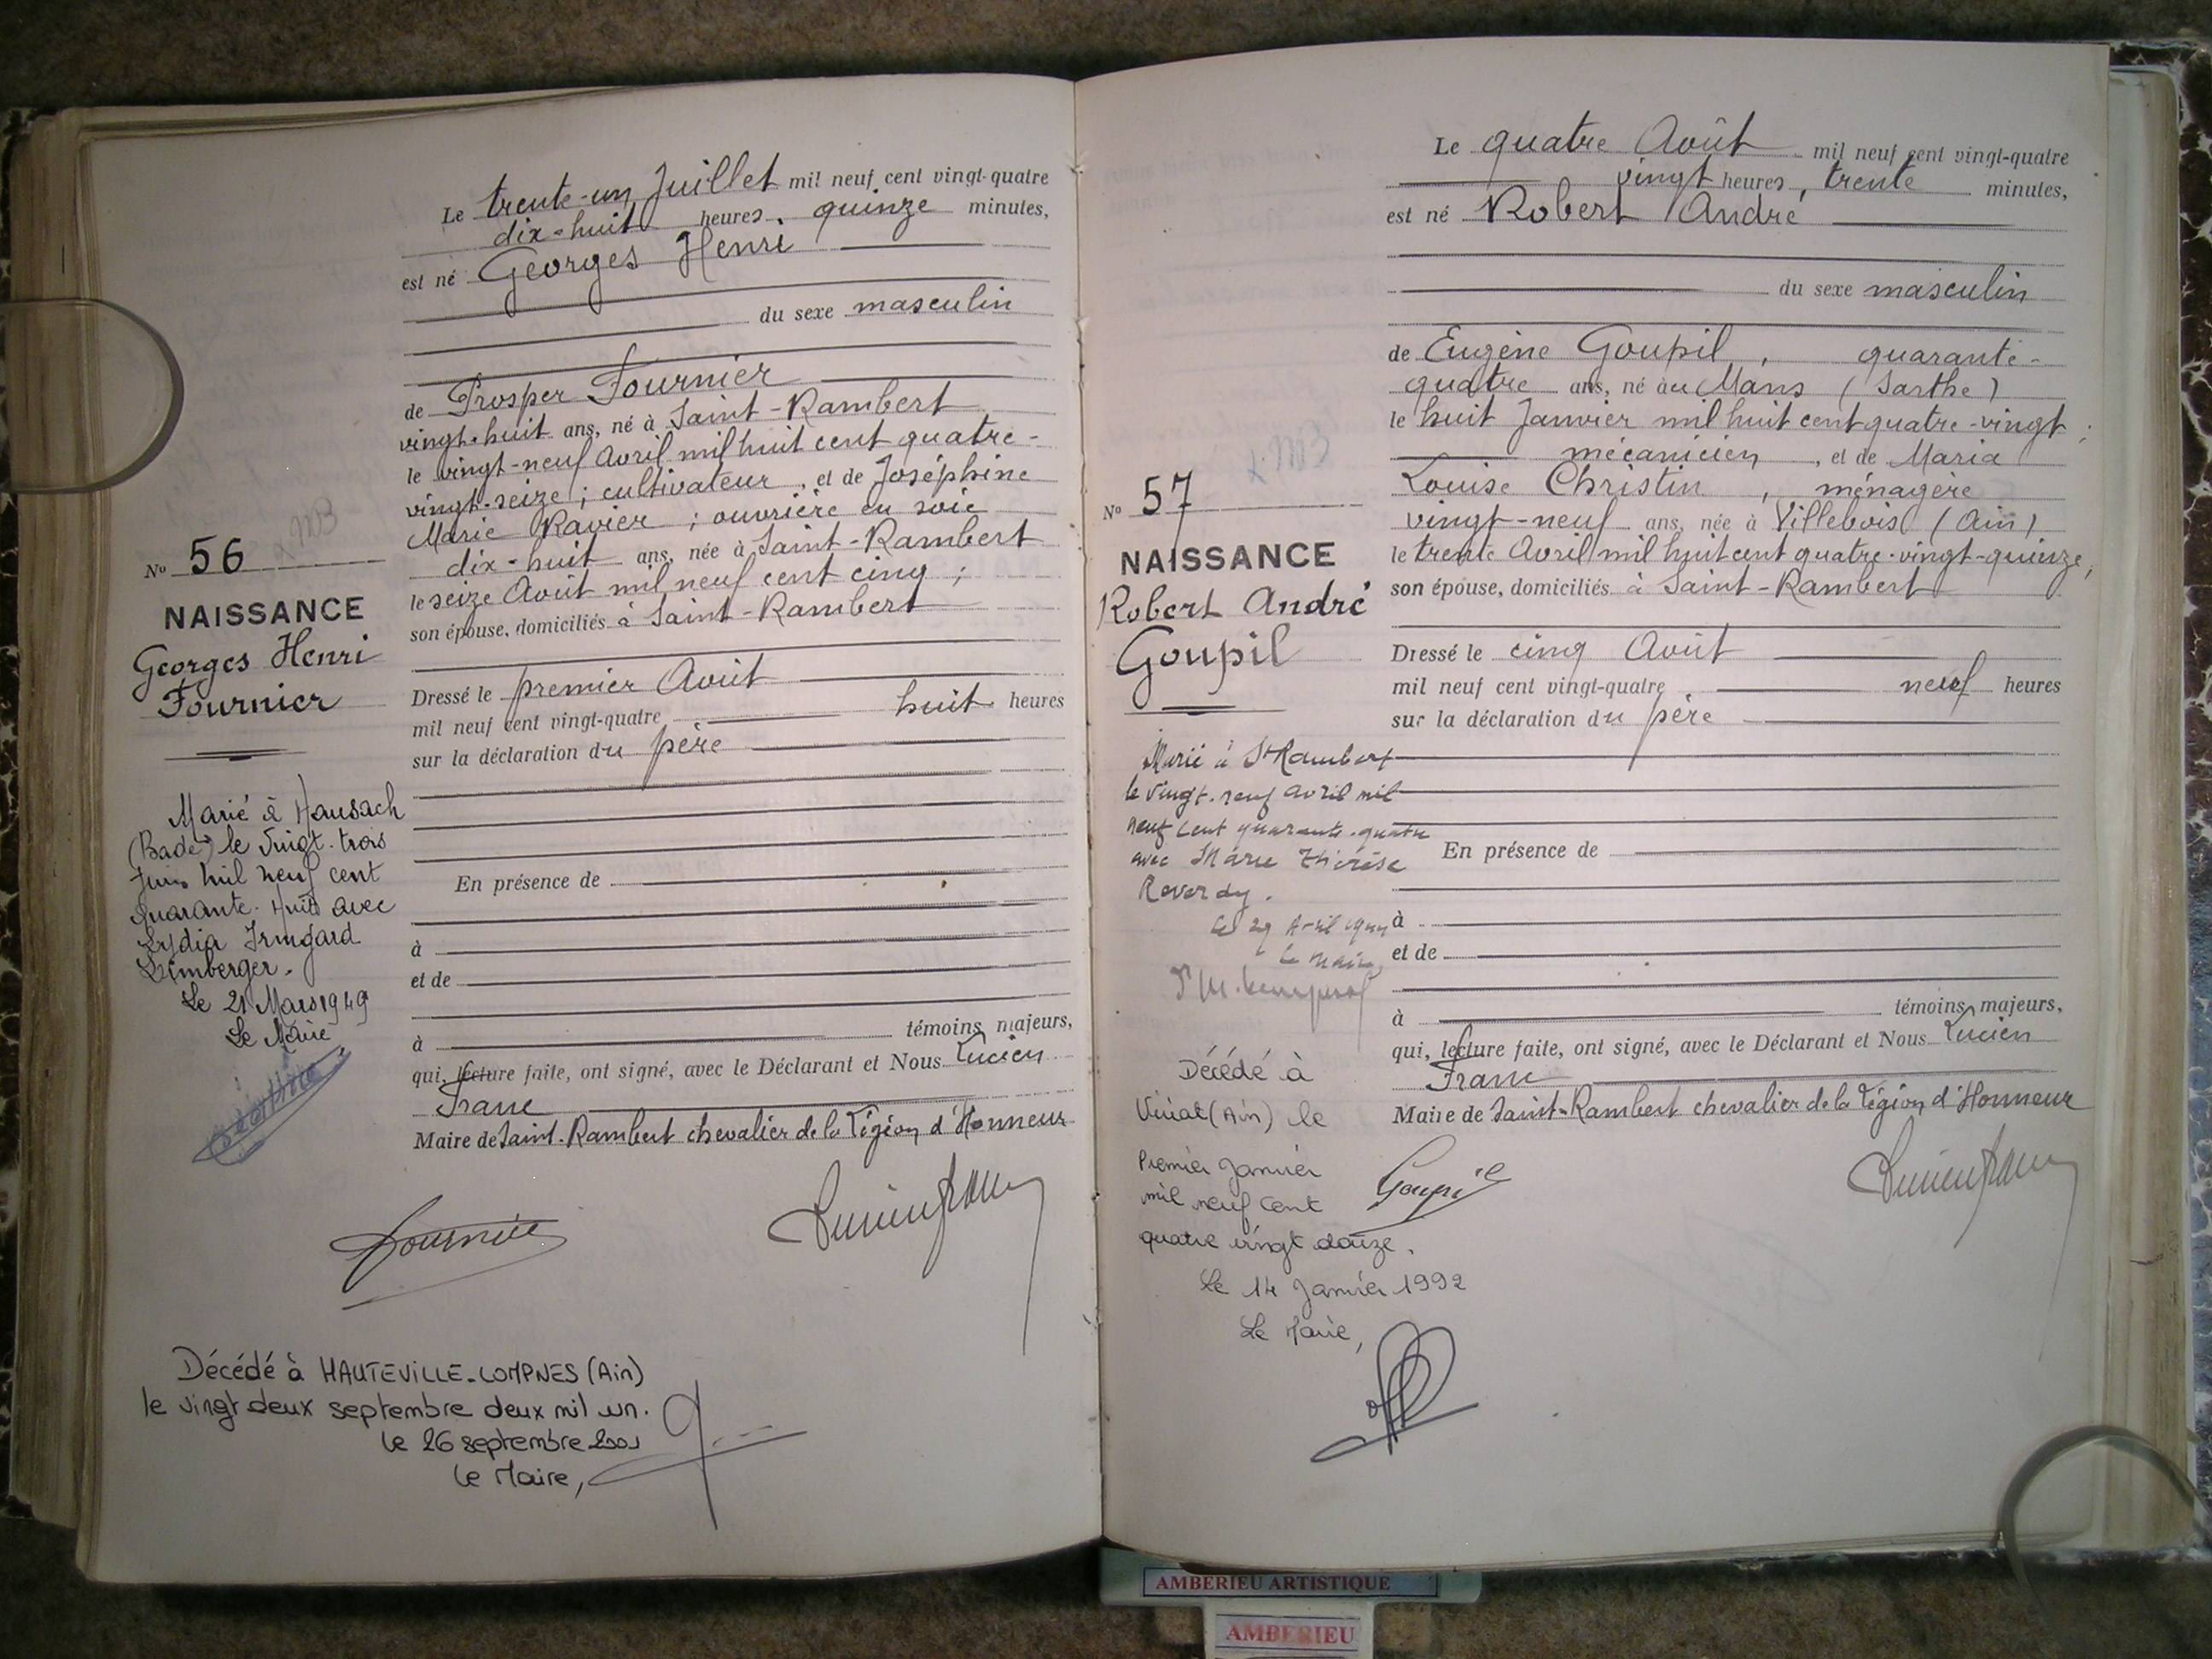 Le trente-un Juillet mil neuf cent vingt-quatre
dix-huit heures, quinze minutes,
est né Georges Henri
du sexe masculin
de Prosper Fournier
vingt-huit ans, né à Saint-Rambert
le vingt-neuf Avril mil huit cent quatre-
vingt-seize ; cultivateur, et de Joséphine
Marie Ravier ; ouvrière en soie
dix-huit ans, née à Saint-Rambert
le seize Août mil neuf cent cinq ;
son épouse, domiciliés à Saint-Rambert
Dressé le premier Août
mil neuf cent vingt-quatre huit heures
sur la déclaration du père
En présence de
à
et de
à témoins majeurs,
qui, lecture faite, ont signé, avec le Déclarant et Nous Lucien
Franc
Maire de Saint-Rambert chevalier de la Légion d'Honneur
No 56
NAISSANCE
Georges Henri
Fournier
Marié à Hausach
(Bade) le vingt-trois
Juin mil neuf cent
quarante-huit avec
Lydia Irmgard
Limberger.
Le 21 Mars 1949
Le Maire
Fournier
Décédé à HAUTEVILLE-LOMPNES (Ain)
le vingt deux septembre deux mil un.
le 26 septembre 2001
Le Maire,
Le quatre Août mil neuf cent vingt-quatre
vingt heures, trente minutes,
est né Robert André
du sexe masculin
de Eugène Goupil, quarante-
quatre ans, né au Mans (Sarthe)
le huit Janvier mil huit cent quatre-vingt ;
mécanicien, et de Maria
Louise Christin, ménagère
vingt-neuf ans, née à Villebois (Ain)
le trente Avril mil huit cent quatre-vingt-quinze,
son épouse, domiciliés à Saint-Rambert
Dressé le cinq Août
mil neuf cent vingt-quatre, neuf heures
sur la déclaration du père
En présence de
à
et de
à témoins majeurs,
qui, lecture faite, ont signé, avec le Déclarant et Nous Lucien
Franc
Maire de Saint-Rambert chevalier de la Légion d'Honneur
No 57
NAISSANCE
Robert André
Goupil
Marié à St Rambert
le vingt-neuf avril mil
neuf cent quarante-quatre
avec Marie Thérèse
Reverdy.
Le 29 Avril 1944
Le Maire
Décédé à
Viriat (Ain) le
Premier Janvier
mil neuf cent
quatre vingt douze.
Le 14 Janvier 1992
Le Maire,
Goupil
AMBERIEU ARTISTIQUE
AMBERIEU